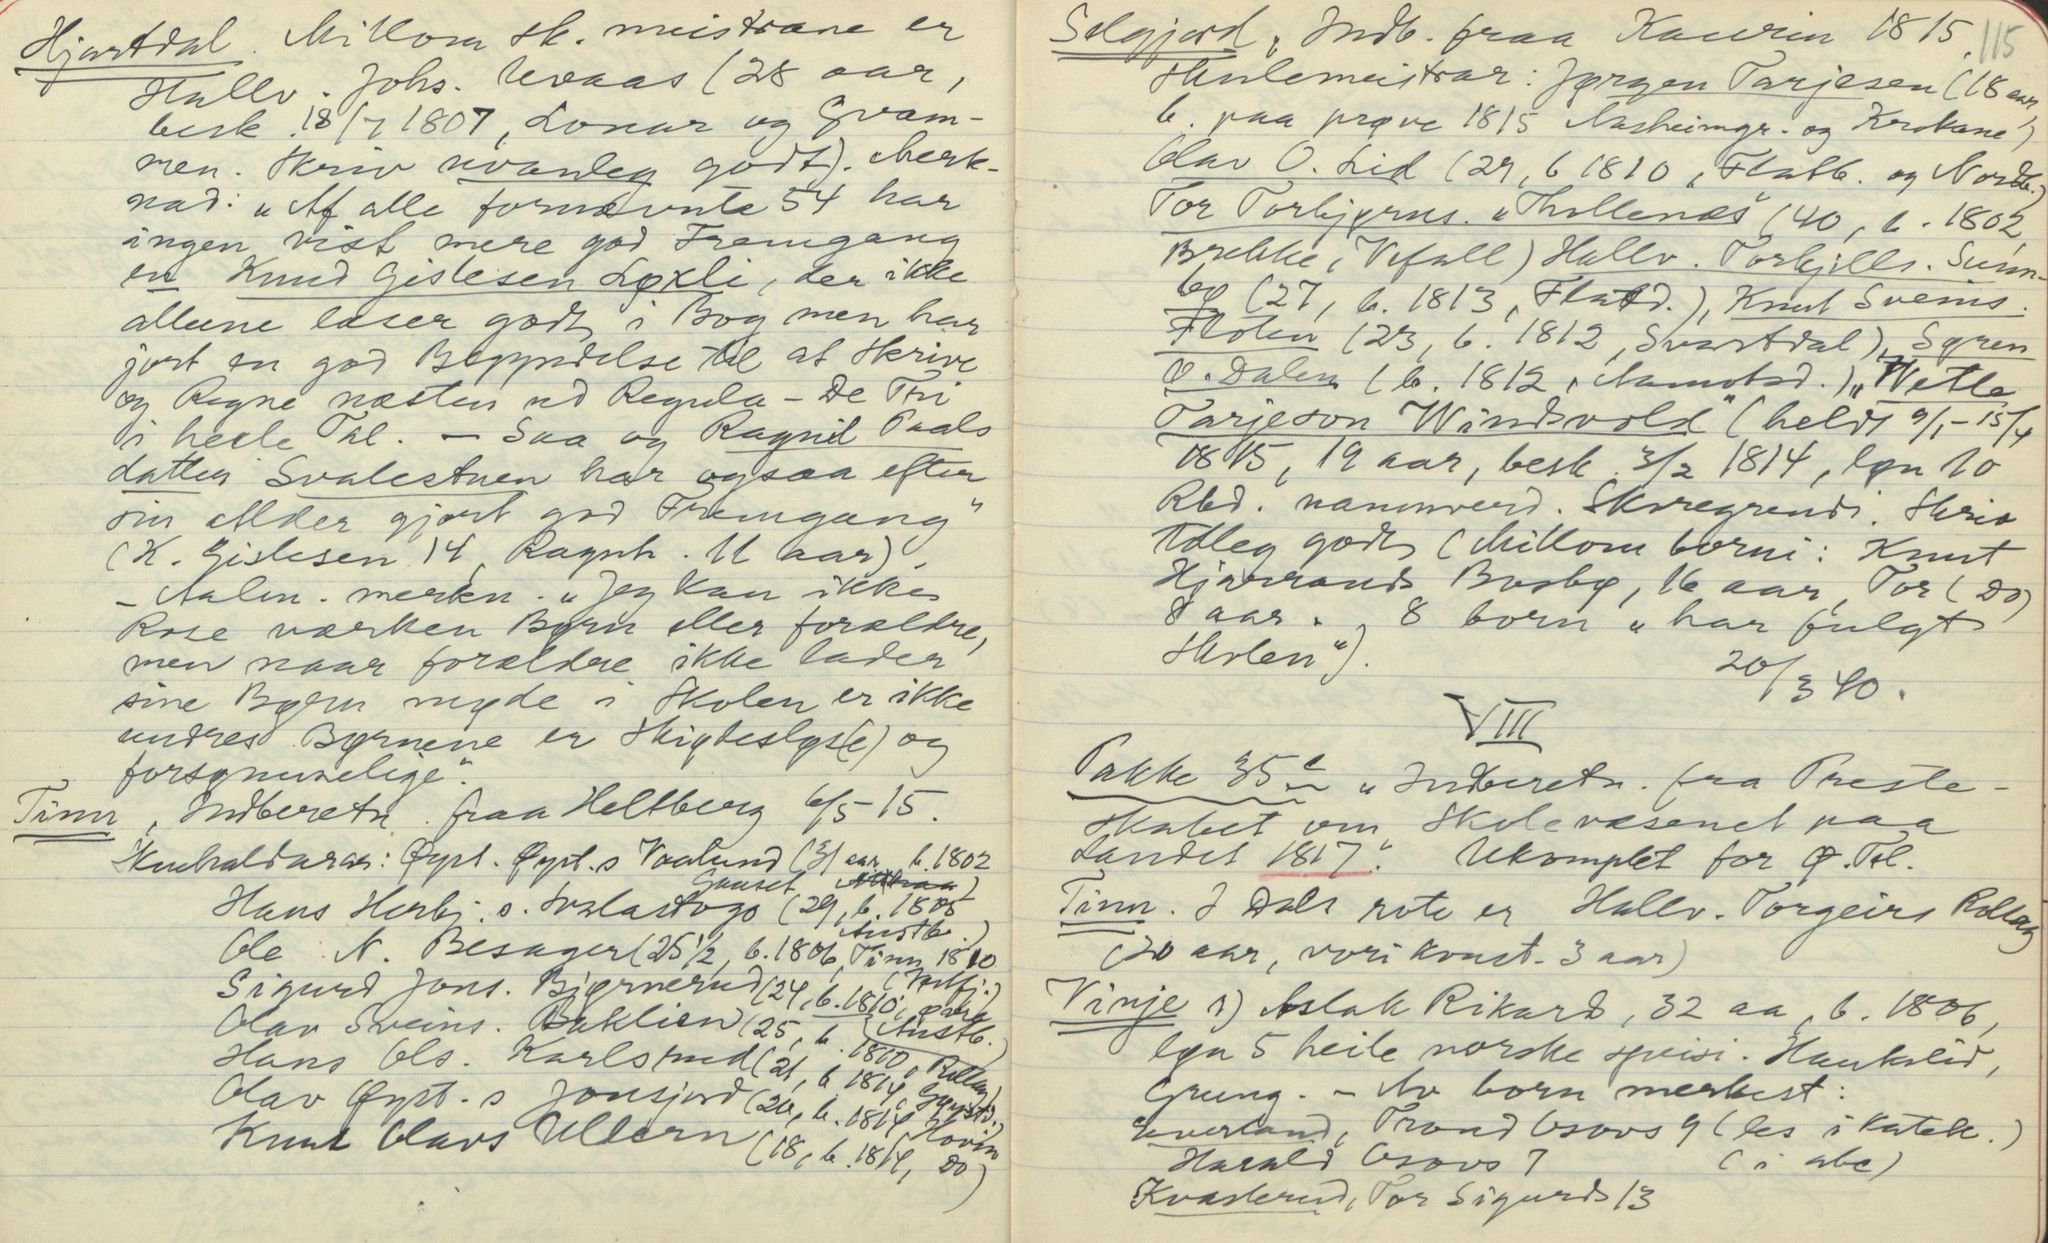 Hjartdal. Millom sk. meistrane er
Hallv. Johs. Uvaas (28 aar,
besk. 18/7 1807, Lonar og Gvam-
men. Skriv uvanleg godt). Merk-
nad: "Af alle fornævnte 54 har
ingen vist mere god Fremgang
en Knud Gislesen Løkli, der ikke
alleene læser godt i Bog men har
jort en god Begyndelse til at Skrive
og Regne næsten ud Regula-De Tri
i heele Tal. - Saa og Ragnil Paals
datter Svalestuen har ogsaa efter
sin Alder gjort god Fremgang"
(K. Gislesen 14, Ragnh. 11 aar).
- Aalm. merkn. "Jeg kan ikke
Rose værken Børn eller forældre,
men naar forældre ikke lader
sine Børn møde i Skolen er ikke
undres Børnene er Skjødesløs(e) og
forsømmelige".
Tinn, Indberetn. fraa Heltberg 6/5-15.
Skulhaldarar: Øyst. Øyst.s Vaalund (31 aar, b. 1802
Gauset)
Hans Herbj.s. (29, b. 1805
Austb.)
Ole N. Besager (25 1/2, b. 1806, Tinn 1810
(Vestfj.)
Sigurd Jons. Bjørnerud (24, b. 1810,
Olav Sveins. Bakklien (25, b. 1810, Austb.)
Hans Ols. Karlsrud (21, b. 1814,
Olav Øyst.s Jonsjord (20, b. 1814,
Knut Olavs Ullern (18, b. 1814, Do)
115
Selgjord, Indb. fraa Kaurin 1815.
Skulemeistrar: Jørgen Tarjesen (18 aar,
b. paa prøve 1815 Aasheimgr. og Krokane)
Olav O. Lid (29, b 1810, Flatb. og Nordb.)
Tor Torbjørns. "Thollenæs" (40, b. 1802,
Brekke, Vefall) Hallv. Torkjells. Sunn-
bø (27, b. 1813, Flatd.), Knut Sveins.
Floten (23, b. 1812, Svartdal), Søren
O. Dalen (b. 1812, Aamotsd.), "Wetle
Tarjeson Windsvold" (heldt 9/1-15/4
1815, 19 aar, besk. 3/2 1814, løn 10
Rbd. namnverd. Skoregrendi. Skriv
tolleg godt (Millom borni: Knut
Hjarrands Bosbø, 16 aar, Tor (Do)
8 aar. 8 born "har fulgt
Skolen").
20/3 40.
VIII
Pakke 35 c "Indberetn. fra Preste-
skabet om Skolevæsenet paa
Landet 1817". Ukomplet for Ø. Tel.
Tinn. I Dals rote er Hallv. Torgeirs Rollag
(20 aar, vori konst. 3 aar)
Vinje 1) Aslak Rikard, 32 aa, b. 1806,
løn 5 heile norske speisi. Haukelid,
Grung. - Av born merkest:
Everland, Trond Osovs 9 (les i katek.)
Harald Osovs 7 (i abc)
Kvasterud, Tor Sigurds 13